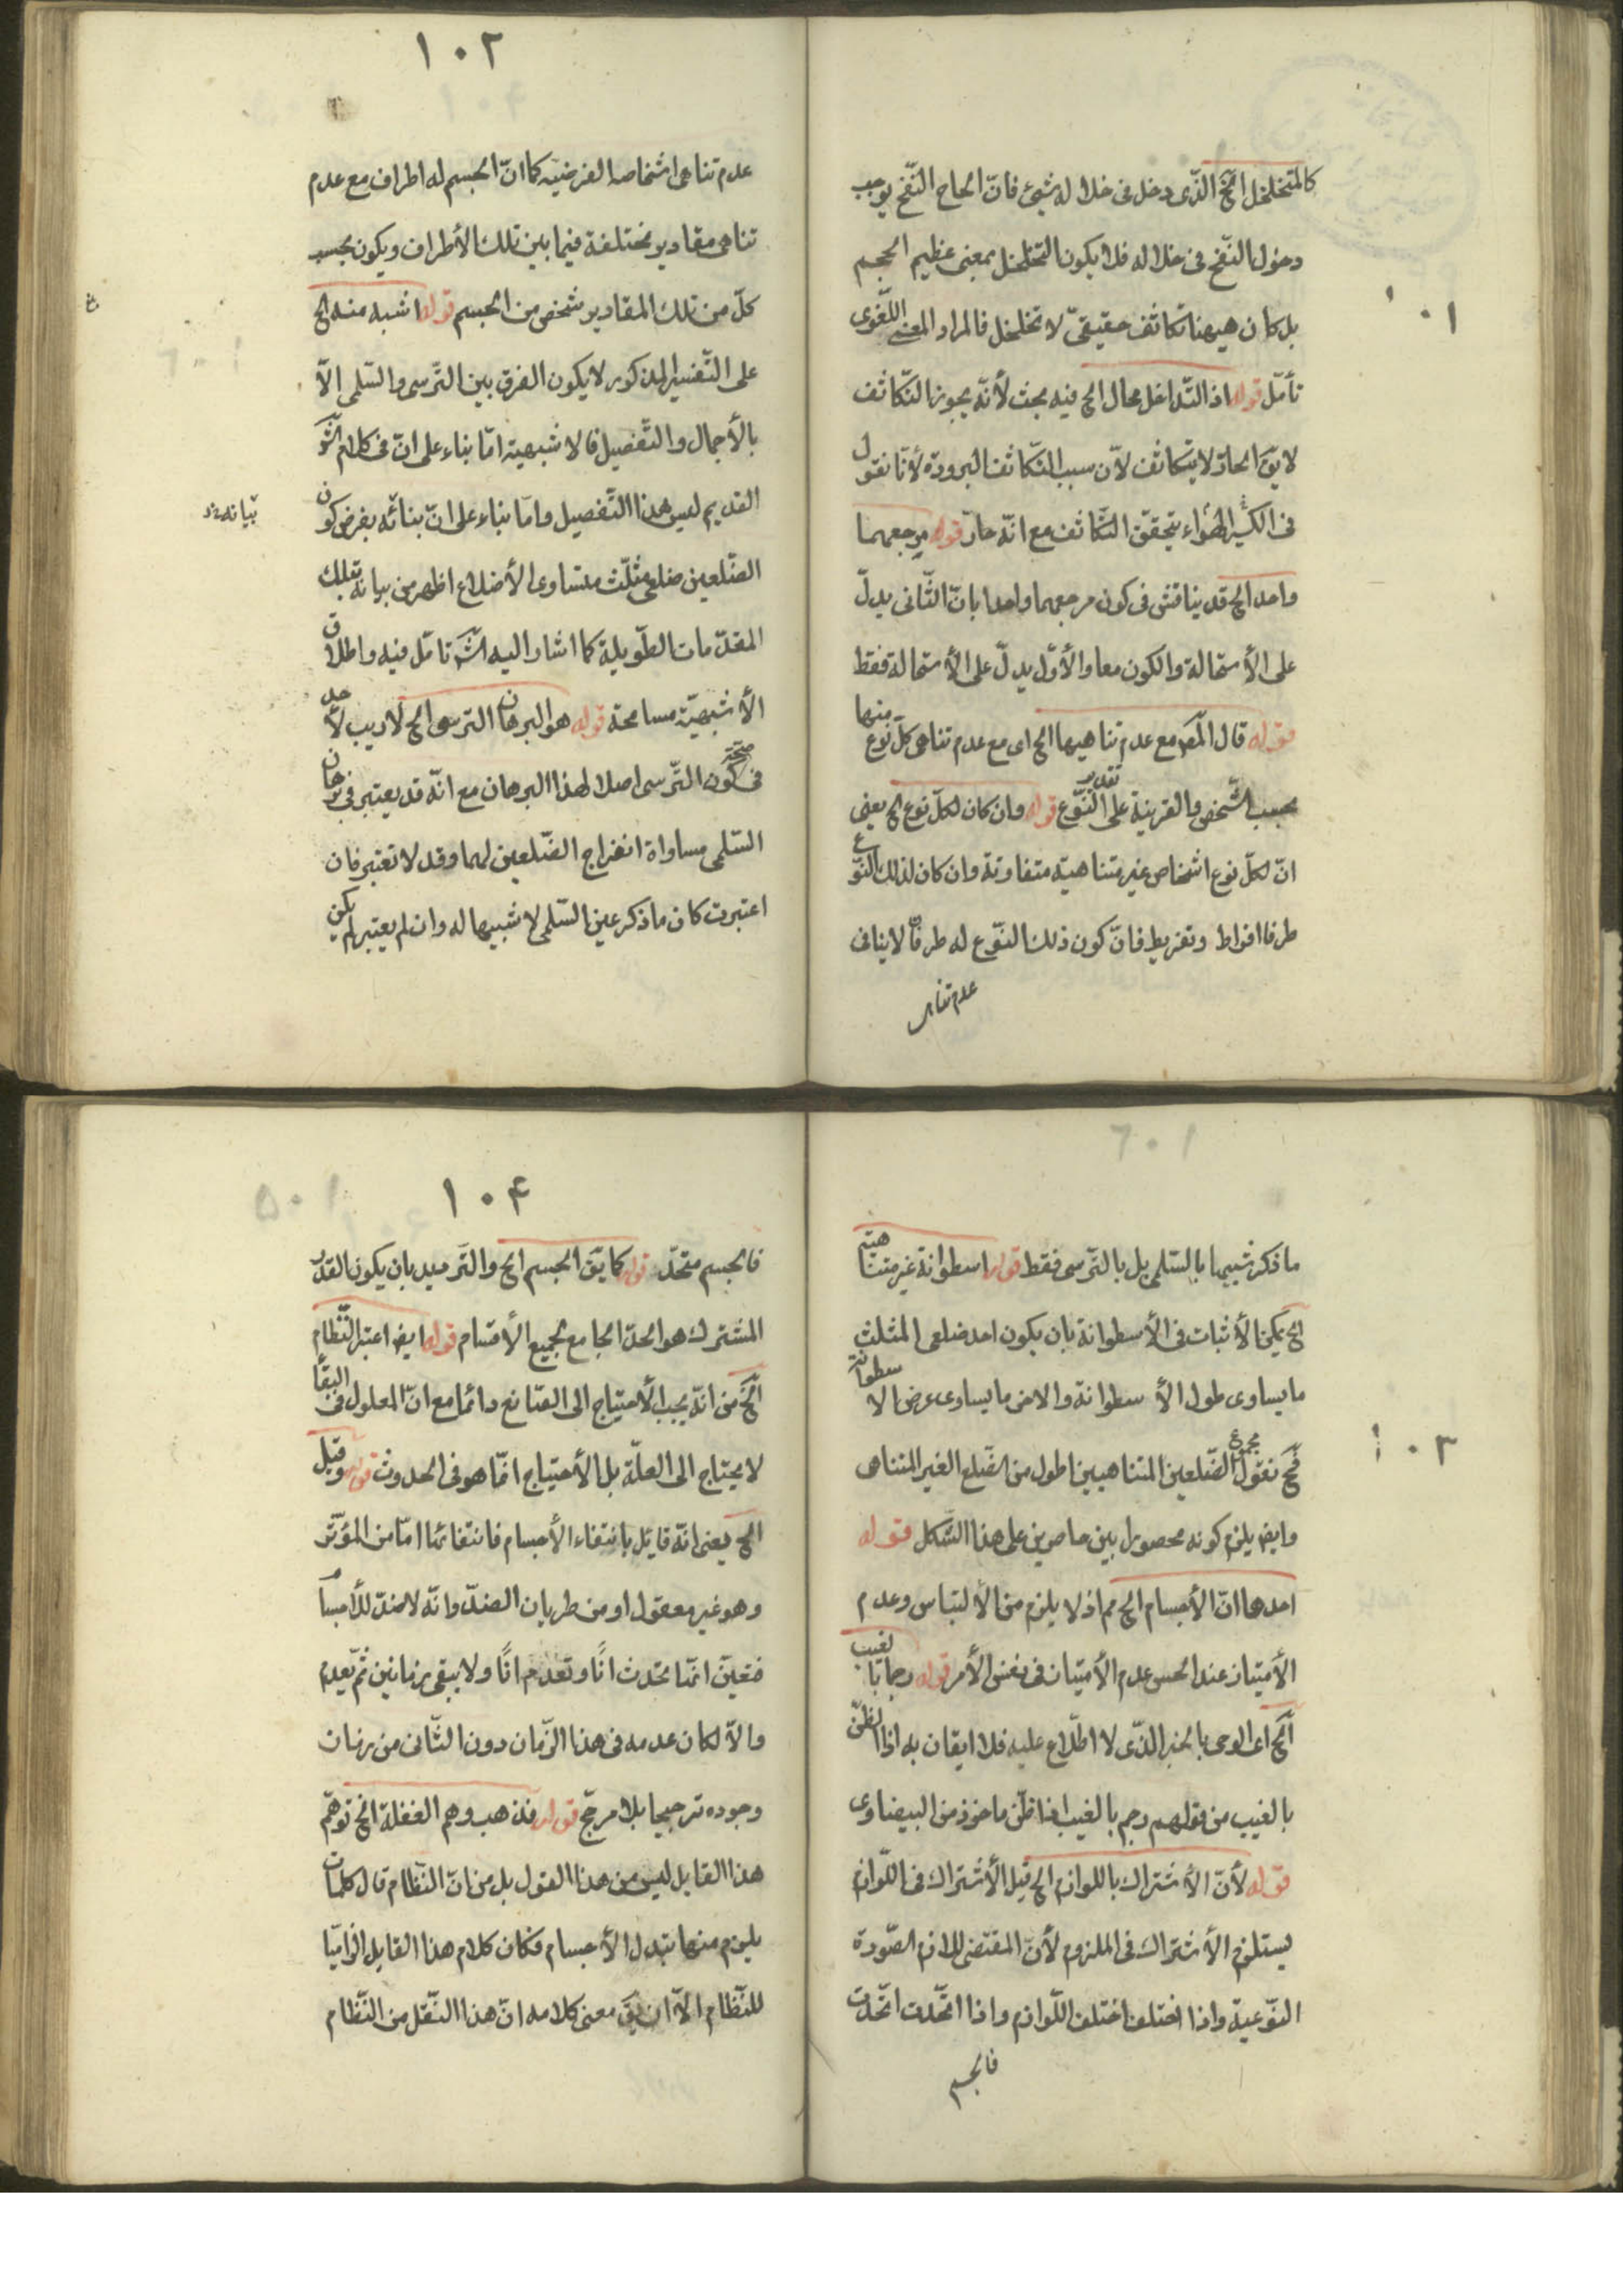 ١٠١
كالمتخلخل الخ الذّى دخل فى خلاله شيئ فانّ الحاح النّفخ يوجب
دخول النّفخ فى خلاله فلا يكون التخلخل بمعنى عظيم الحجم
بل كان هيهنا تكاثف حقيقىّ لا تخلخل فالمراد المعنى اللّغوى
تأمّل قوله اذ التّداخل محال الخ فيه بحث لأنّه يجوز التّكاثف
لا يق الحارّ لا يتكاثف لأن سبب التّكاثف البرودة لأنّا نقول
فى الكثير الهواء يتحقّق التّكاثف مع انّه حارّ قوله مرجعهما
واحد الخ قد يناقش فى كون مرجعهما واحدا بانّ الثّانى يدلّ
على الأستحالة والكون معا والأوّل يدلّ على الأستحالة فقط
قوله قال المص مع عدم تناهيها الخ اى مع عدم تناهى كلّ نوع منها
بحسب الشّخص والقرينة على تقدير النّوع قوله وان كان لكلّ نوع الخ يعنى
انّ لكلّ نوع اشخاص غير متناهية متفاوتة وان كان لذلك النّوع
طرفا افراط وتفريط فانّ كون ذلك النّوع له طرفان لا ينافى
عدم تناهى
١٠٢
عدم تناهى اشخاصه الفرضيّه كما انّ الجسم له اطراف مع عدم
تناهى مقادير مختلفة فيما بين تلك الأطراف ويكون بحسب
كلّ من تلك المقادير شخص من الجسم قوله اشبه منه الخ
على التّفسير المذكور لا يكون الفرق بين التّرسى والسّلمى الّا
بالأجمال والتّفصيل فالاشبهية امّا بناء على انّ فى كلام الشّو
القديم ليس هذا التّفصيل وامّا بناء على انّ بنائه بفرض كون
الضّلعين ضلعى مثلّث متساوى الأضلاع اظهر من بيانه بتلك
المقدّمات الطّويلة كما اشار اليه الشّر تامّل فيه واطلاق
الأشبهيّة مسامحة قوله هو البرهان الترسى الخ لا ريب لأحد
فى صحّة كون التّرسى اصلا لهذا البرهان مع انّه قد يعتبر فى برهان
السّلمى مساواة انفراج الضّلعين لهما وقد لا تعتبر فان
اعتبرت كان ما ذكر عين السّلمى لا شبيها له وان لم يعتبر لم يكن
١٠٣
ما ذكر شبيها بالسّلمى بل بالتّرسى فقط قوله اسطوانة غير متناهية
الخ يمكن الأثبات فى الأسطوانة بان يكون احد ضلعى المثلث
ما يساوى طول الأسطوانة والاخر ما يساوى عرض الاسطوانة
فح نقول مجموع الضّلعين المتناهيين اطول من الضّلع الغير المتناهى
وايض يلزم كونه محصورا بين حاصرين على هذا الشّكل قوله
احدها انّ الأجسام الخ مم اذ لا يلزم من الألتباس وعدم
الأمتياز عند الحس عدم الأمتياز فى نفس الأمر قوله رجما بالغيب
الخ اى الوحى بالخبر الذّى لا اطّلاع عليه فلا ايقان به اذ الظنّ
بالغيب من قولهم رجم بالغيب اذا ظنّ ماخوذ من البيضاوى
قوله لأنّ الأشتراك باللوازم الخ قيل الأشتراك فى اللّوازم
يستلزم الأشتراك فى الملزوم لأنّ المقتضى للازم الصّورة
النّوعيّة واذا اختلف اختلف اللّوازم واذا اتّحدت اتّحدت
فالجسم
١٠۴
فالجسم متحّد قوله كما يق الجسم الخ والتّرديد بان يكون القدر
المشترك هو الحدّ الجامع لجميع الأقسام قوله ايض اعتبر النّظام
الخ من انّه يجب الأحتياج الى الصّانع دائما مع انّ المعلول فى البقاء
لا يحتاج الى العلّة بل الأحتياج انّما هو فى الحدوث قوله وقيل
الخ يعنى انّه قايل بانتفاء الأجسام فانتفائها امّا من المؤثّر
وهو غير معقول او من طريان الضدّ وانّه لا ضدّ للأجسام
فتعيّن انّها تحدث انًا وتعدم انًا ولا يبقى زمانين ثمّ تعدم
والّا لكان عدمه فى هذا الزّمان دون الثّانى من زمان
وجوده ترجيحا بلا مرجّح قوله فذهب وهم الغفلة الخ توهّم
هذا القايل ليس من هذا القول بل من انّ النّظام قال كلمات
يلزم منها تبدل الأجسام فكان كلام هذا القايل الزاميّا
للنّظام الّا ان يق معنى كلامه انّ هذا النّقل من النّظام